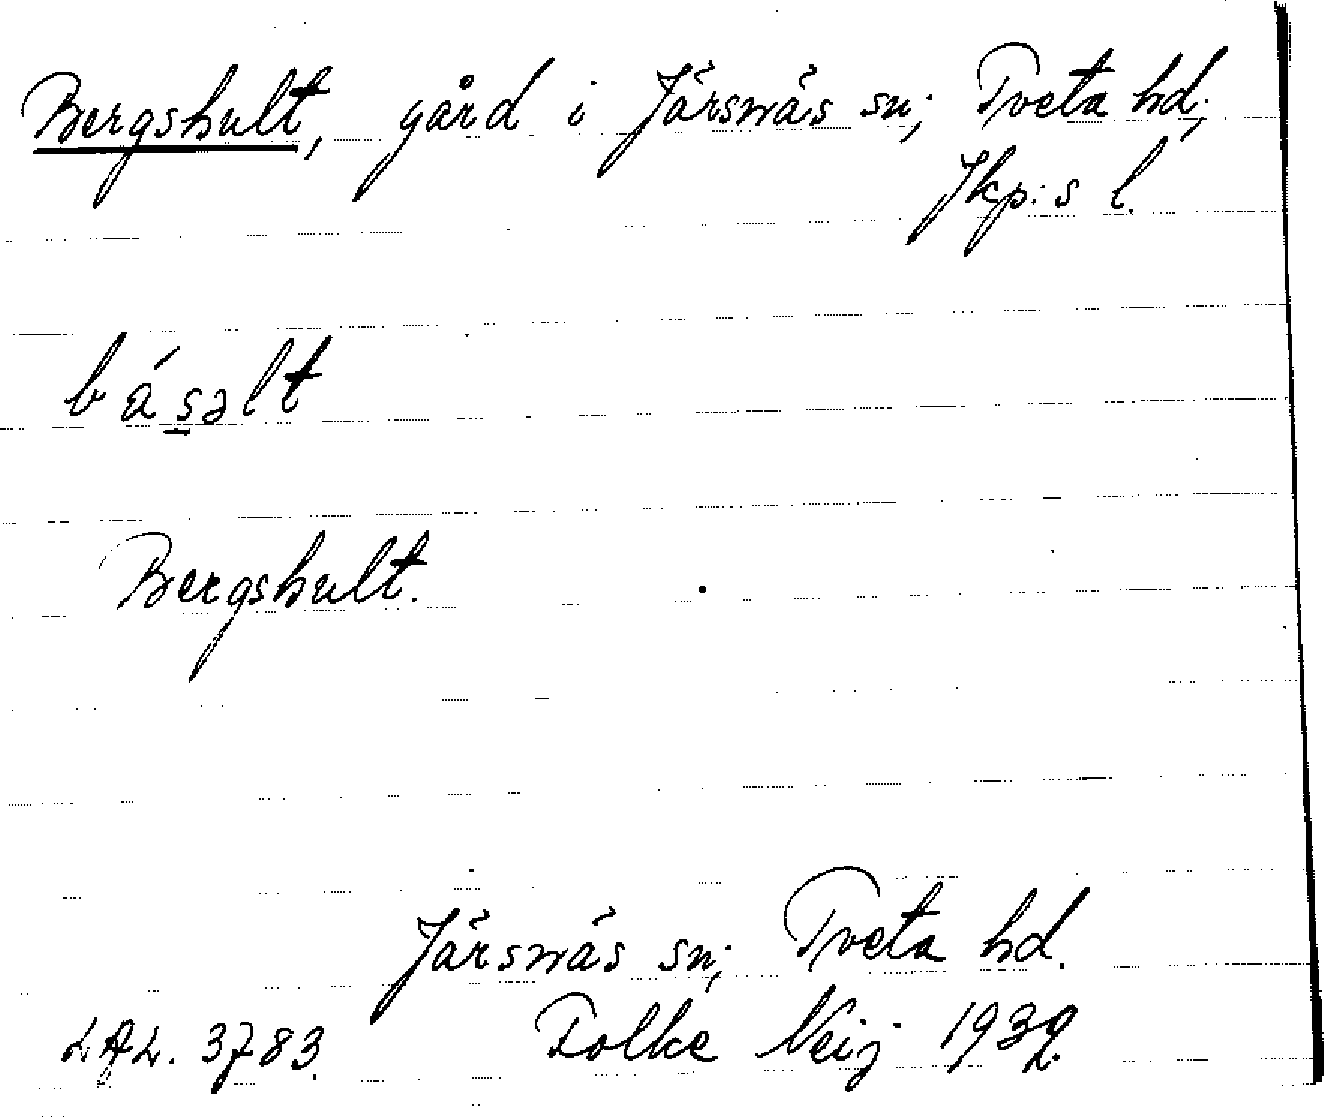 Bergshult, gård i Järsnäs sn; Tveta hd;
Jkp:s l.
básəlt
Bergshult.
Järsnäs sn; Tveta hd.
LAL. 3783. Folke Neij 1932.